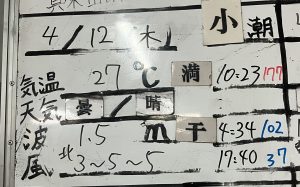 小潮
4/12 木
気温 27 ℃ 満 10:23 177
天気 曇/晴
波 1.5 m 干 4:34 102
風 北3~5~5 17:40 37